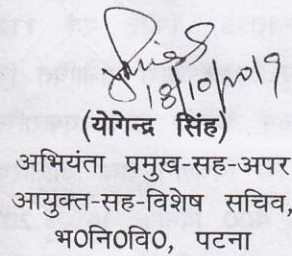 18/10/2019
(योगेन्द्र सिंह)
अभियंता प्रमुख-सह-अपर
आयुक्त-सह-विशेष सचिव,
भ0नि0वि0, पटना